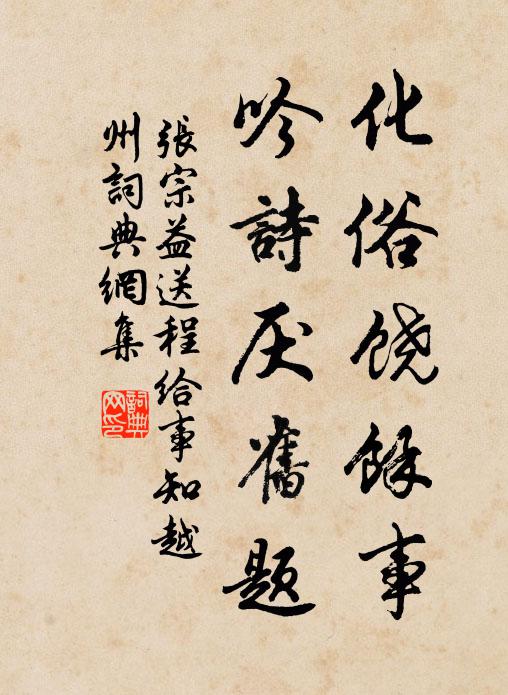 化俗饶餘事
吟詩厌舊题
張宗益送程给事知越
州詞典網集
詞典
网印